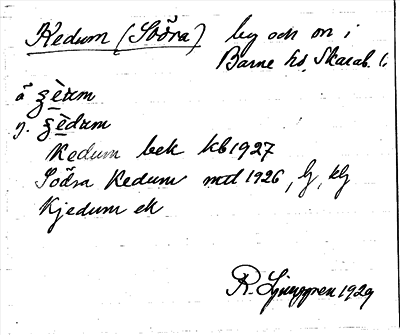 Kedum (Södra) by och sn i
Barne hd, Skarab. l.
ä ʒèum
y. ʒèdum
Kedum bek kb 1927
Södra Kedum mtl 1926, lj, klj
Kjedum ek
R. Ljunggren 1929